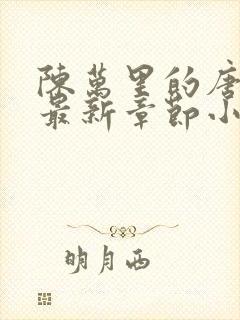 陳萬里的唐
最新章節小
明月西